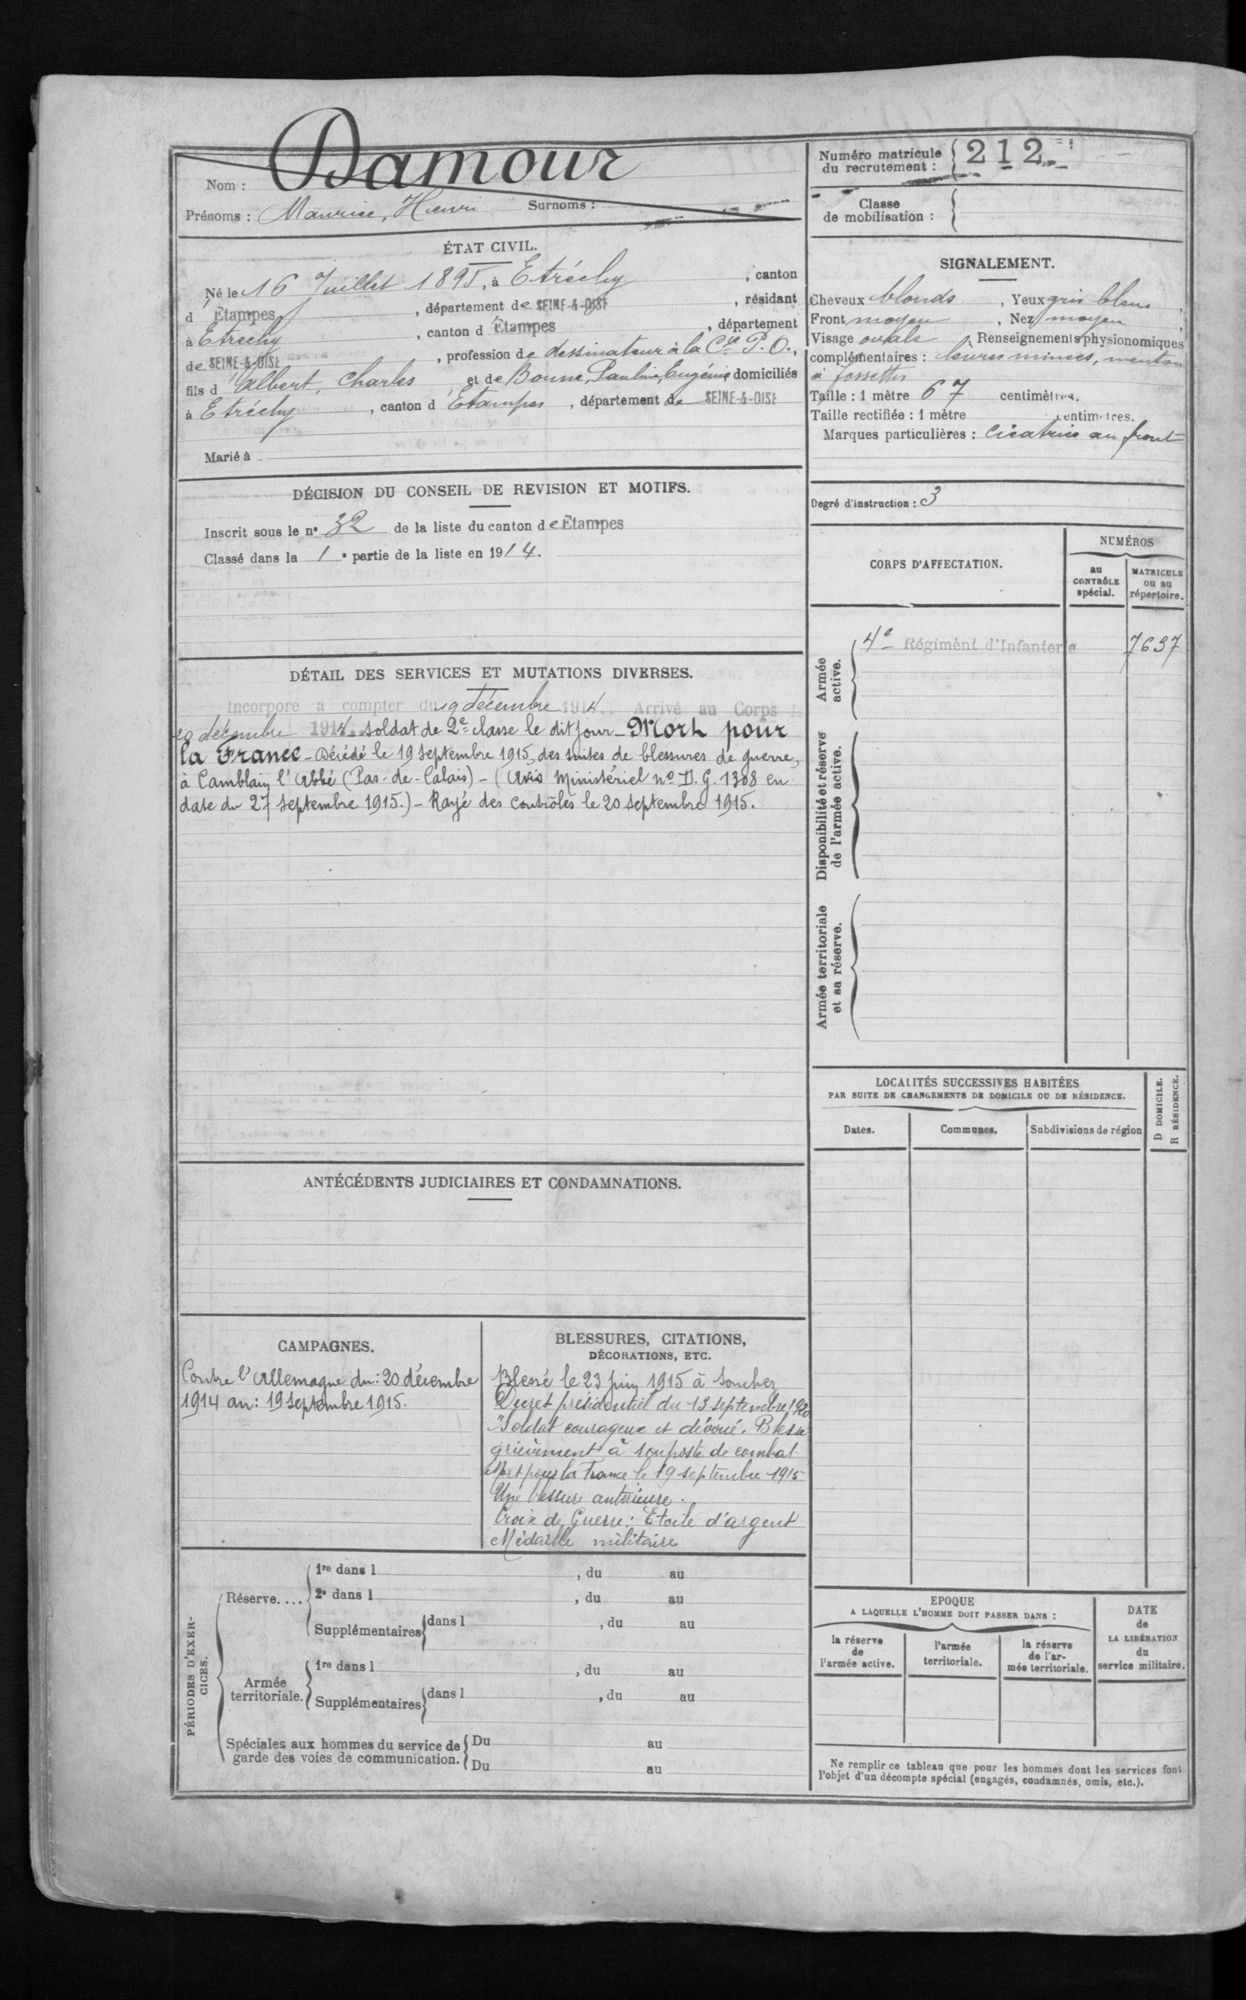 Nom : Damour
Prénoms : Maurice, Henri Surnoms :
Numéro matricule du recrutement : 212
Classe de mobilisation :
ÉTAT CIVIL.
Né le 16 Juillet 1895, à Etréchy, canton
d'Étampes, département de SEINE-&-OISE, résidant
à Etréchy, canton d'Étampes, département
de SEINE-&-OISE, profession de dessinateur à la Cie P. O.,
fils d'Albert, Charles et de Bonne, Pauline, Eugénie domiciliés
à Etréchy, canton d'Etampes, département de SEINE-&-OISE
Marié à
SIGNALEMENT.
Cheveux blonds, Yeux gris bleu,
Front moyen, Nez moyen,
Visage ovale, Renseignements physionomiques
complémentaires : lèvres minces, menton
à fossette
Taille : 1 mètre 67 centimètres.
Taille rectifiée : 1 mètre centimètres.
Marques particulières : cicatrice au front
Degré d'instruction : 3
DÉCISION DU CONSEIL DE REVISION ET MOTIFS.
Inscrit sous le no 32 de la liste du canton de Étampes
Classé dans la 1e partie de la liste en 1914.
CORPS D'AFFECTATION.
NUMÉROS
au CONTRÔLE spécial.
MATRICULE ou au répertoire.
Armée active.
4e Régiment d'Infanterie 7637
Disponibilité et réserve de l'armée active.
Armée territoriale et sa réserve.
DÉTAIL DES SERVICES ET MUTATIONS DIVERSES.
Incorporé à compter du 19 décembre 1914. Arrivé au Corps le
20 décembre 1914 soldat de 2e classe le dit jour - Mort pour
la France - Décédé le 19 septembre 1915, des suites de blessures de guerre,
à Camblain l'Abbé (Pas-de-Calais) - (Avis Ministériel no D.G. 1308 en
date du 27 septembre 1915.) - Rayé des contrôles le 20 septembre 1915.
LOCALITÉS SUCCESSIVES HABITÉES
PAR SUITE DE CHANGEMENTS DE DOMICILE OU DE RÉSIDENCE.
Dates. Communes. Subdivisions de région
D DOMICILE.
R RÉSIDENCE.
ANTÉCÉDENTS JUDICIAIRES ET CONDAMNATIONS.
CAMPAGNES.
Contre l'Allemagne du : 20 décembre
1914 au : 19 septembre 1915.
BLESSURES, CITATIONS,
DÉCORATIONS, ETC.
Blessé le 23 juin 1915 à Souchez
Décret présidentiel du 13 septembre 1920
Soldat courageux et dévoué. Blessé
grièvement à son poste de combat
Mort pour la France le 19 septembre 1915
Une blessure antérieure.
Croix de Guerre : Etoile d'argent
Médaille militaire
PÉRIODES D'EXERCICES.
Réserve....
1re dans l , du au
2e dans l , du au
Supplémentaires dans l , du au
Armée territoriale.
1re dans l , du au
Supplémentaires dans l , du au
Spéciales aux hommes du service de garde des voies de communication.
Du au
Du au
EPOQUE
A LAQUELLE L'HOMME DOIT PASSER DANS :
la réserve de l'armée active.
l'armée territoriale.
la réserve de l'armée territoriale.
DATE de LA LIBÉRATION du service militaire.
Ne remplir ce tableau que pour les hommes dont les services font
l'objet d'un décompte spécial (engagés, condamnés, omis, etc.).